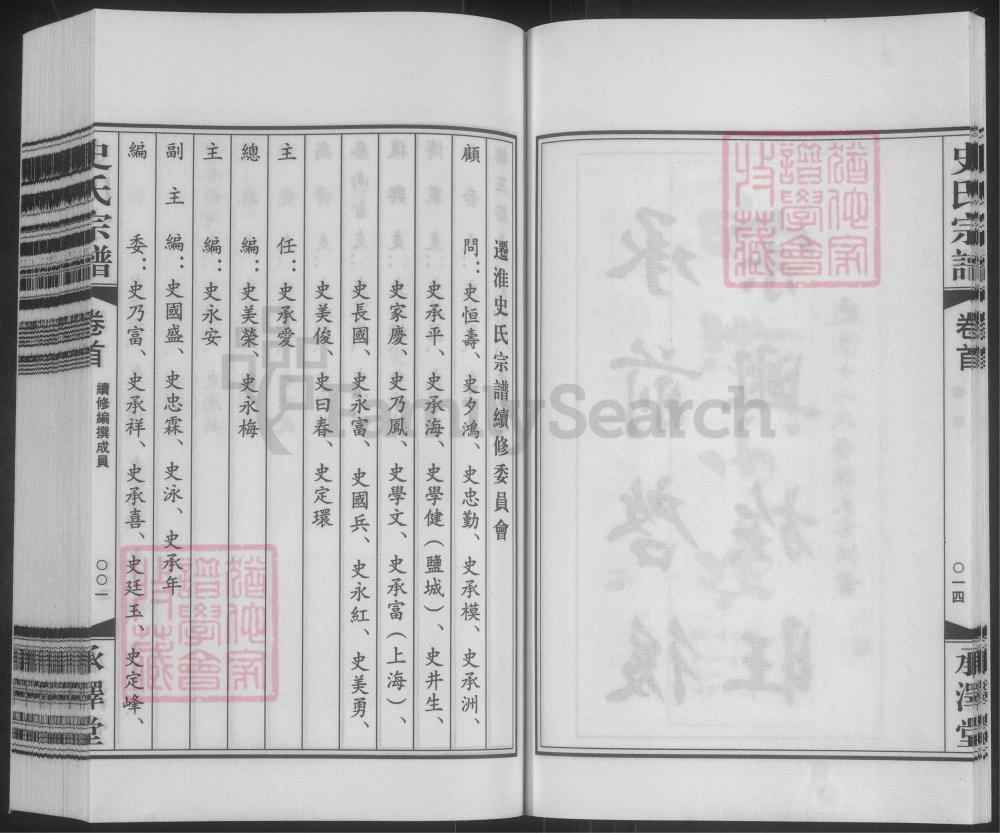 史氏宗譜
卷首
〇一四
承澤堂
遷淮史氏宗譜續修委員會
顧問：史恒壽、史夕鴻、史忠勤、史承模、史承洲、
史承平、史承海、史學健（鹽城）、史井生、
史家慶、史乃鳳、史學文、史承富（上海）、
史長國、史永富、史國兵、史永紅、史美勇、
史美俊、史曰春、史定環
主任：史承愛
總編：史美榮、史永梅
主編：史永安
副主編：史國盛、史忠霖、史泳、史承年
編委：史乃富、史承祥、史承喜、史廷玉、史定峰、
史氏宗譜
卷首
續修編撰成員
〇〇一
承澤堂
FamilySearch